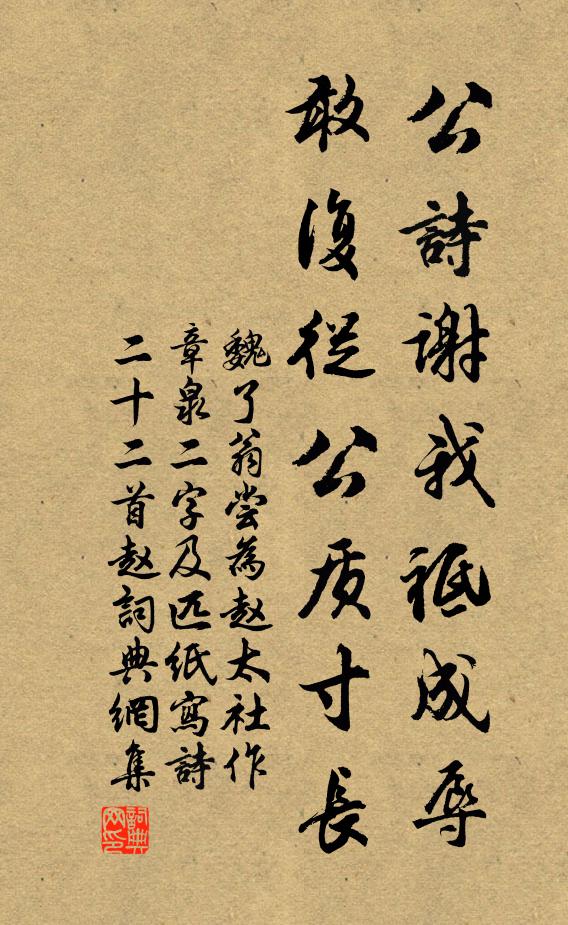 公詩謝我祗成辱
敢復從公质寸長
魏了翁尝為赵太社作
章泉二字及匹纸寫詩
二十二首赵詞典網集
詞典網印